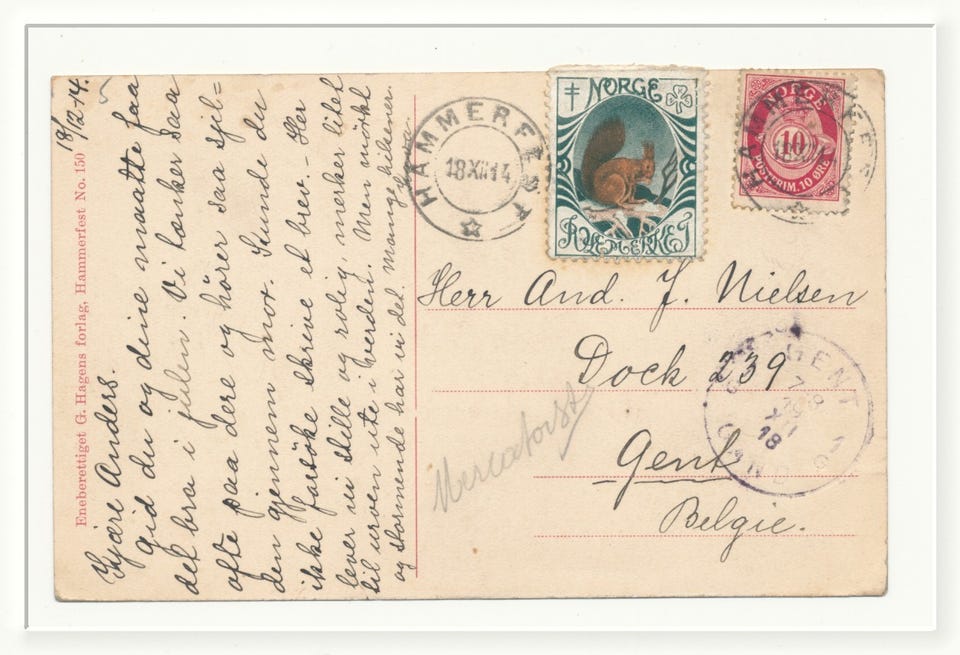 Eneberettiget G. Hagens forlag, Hammerfest No. 150
18/12-14.
Kjære Anders.
gid du og dine maatte faa
det bra i julen. Vi tænker saa
ofte paa dere og hører saa sjel-
den gjennem mor. Kunde du
ikke forsöke skrive et brev. Her
lever vi stille og rolig, merker litet
til urven ute i verden. Men mörkt
og stormende har vi det. Mange hilsener
HAMMERFEST
18 XII 14
NORGE
RYEMERKET
NORGE
10
POSTFRIM. 10 ØRE
HAMMERFEST
Herr And. J. Nielsen
Dock 239
Gent
Belgie.
Mercatorst
GENT